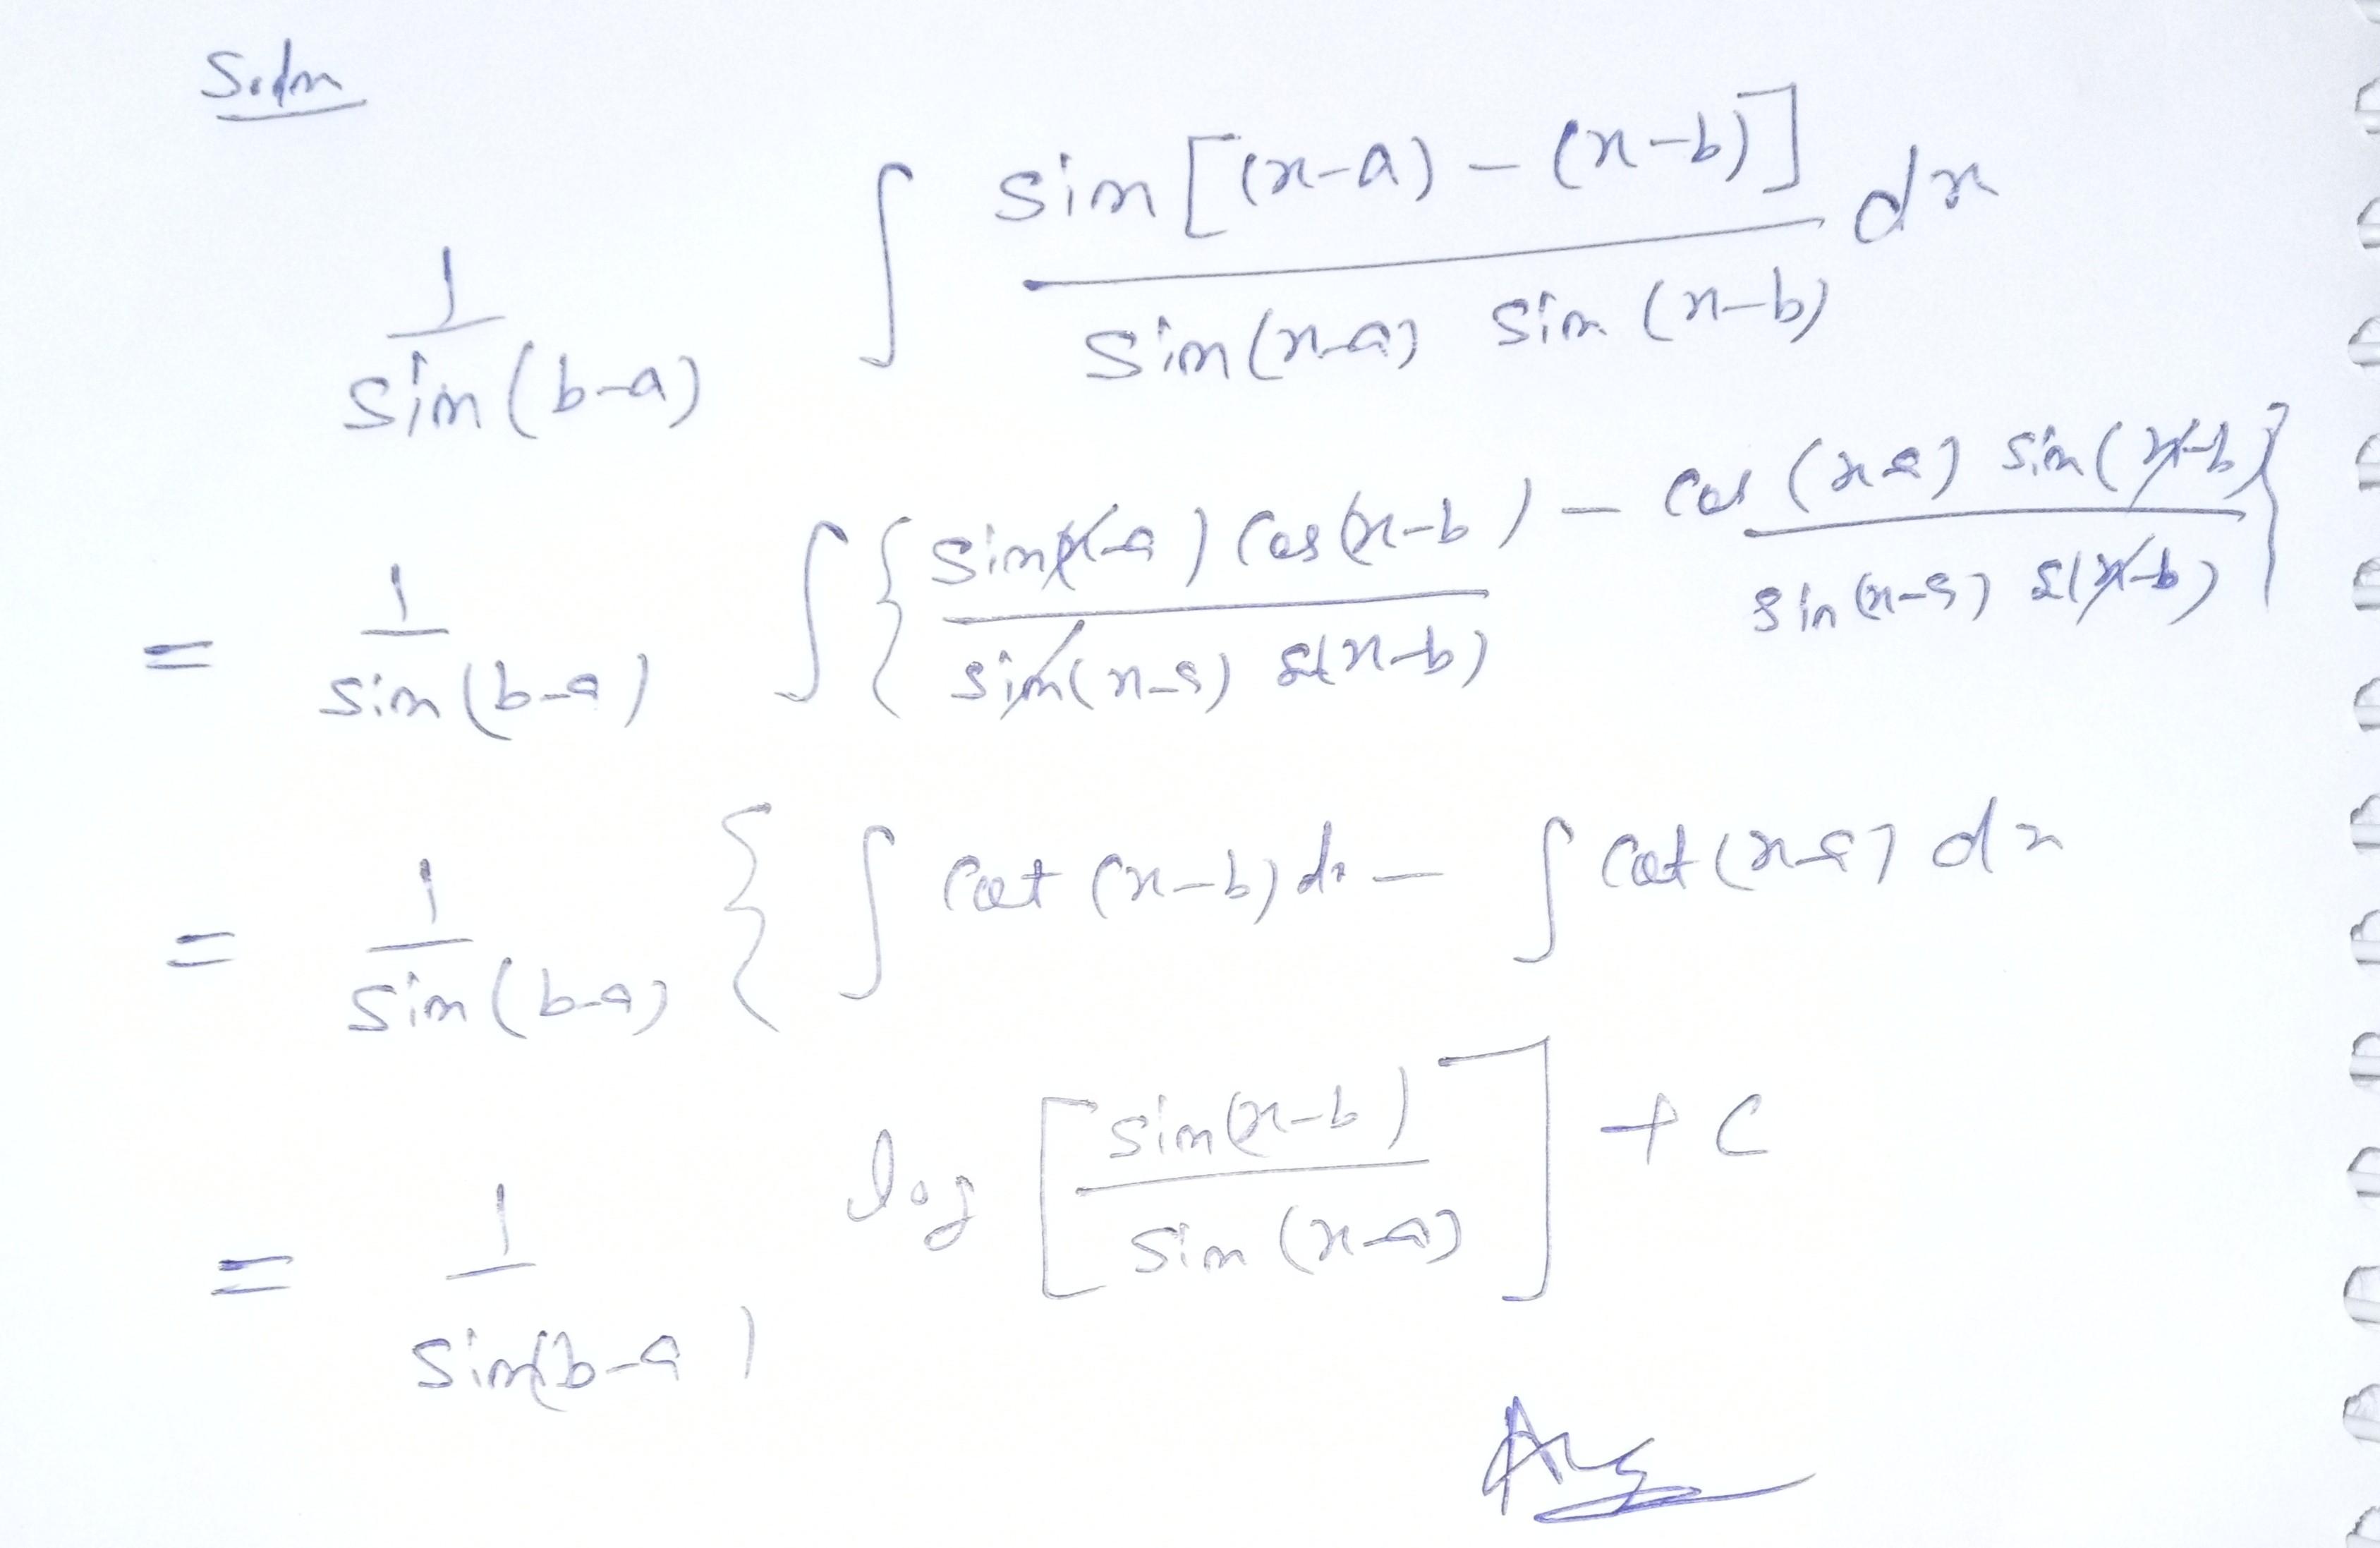 Soln
1/sin(b-a) ∫ sin[(x-a) - (x-b)]/sin(x-a) sin(x-b) dx
= 1/sin(b-a) ∫{ sin(x-a) cos(x-b)/sin(x-a) s(x-b) - cos(x-a) sin(x-b)/sin(x-a) s(x-b) }
= 1/sin(b-a) { ∫ cot(x-b) dx - ∫ cot(x-a) dx
= 1/sin(b-a) log [ sin(x-b)/sin(x-a) ] + C
Ans